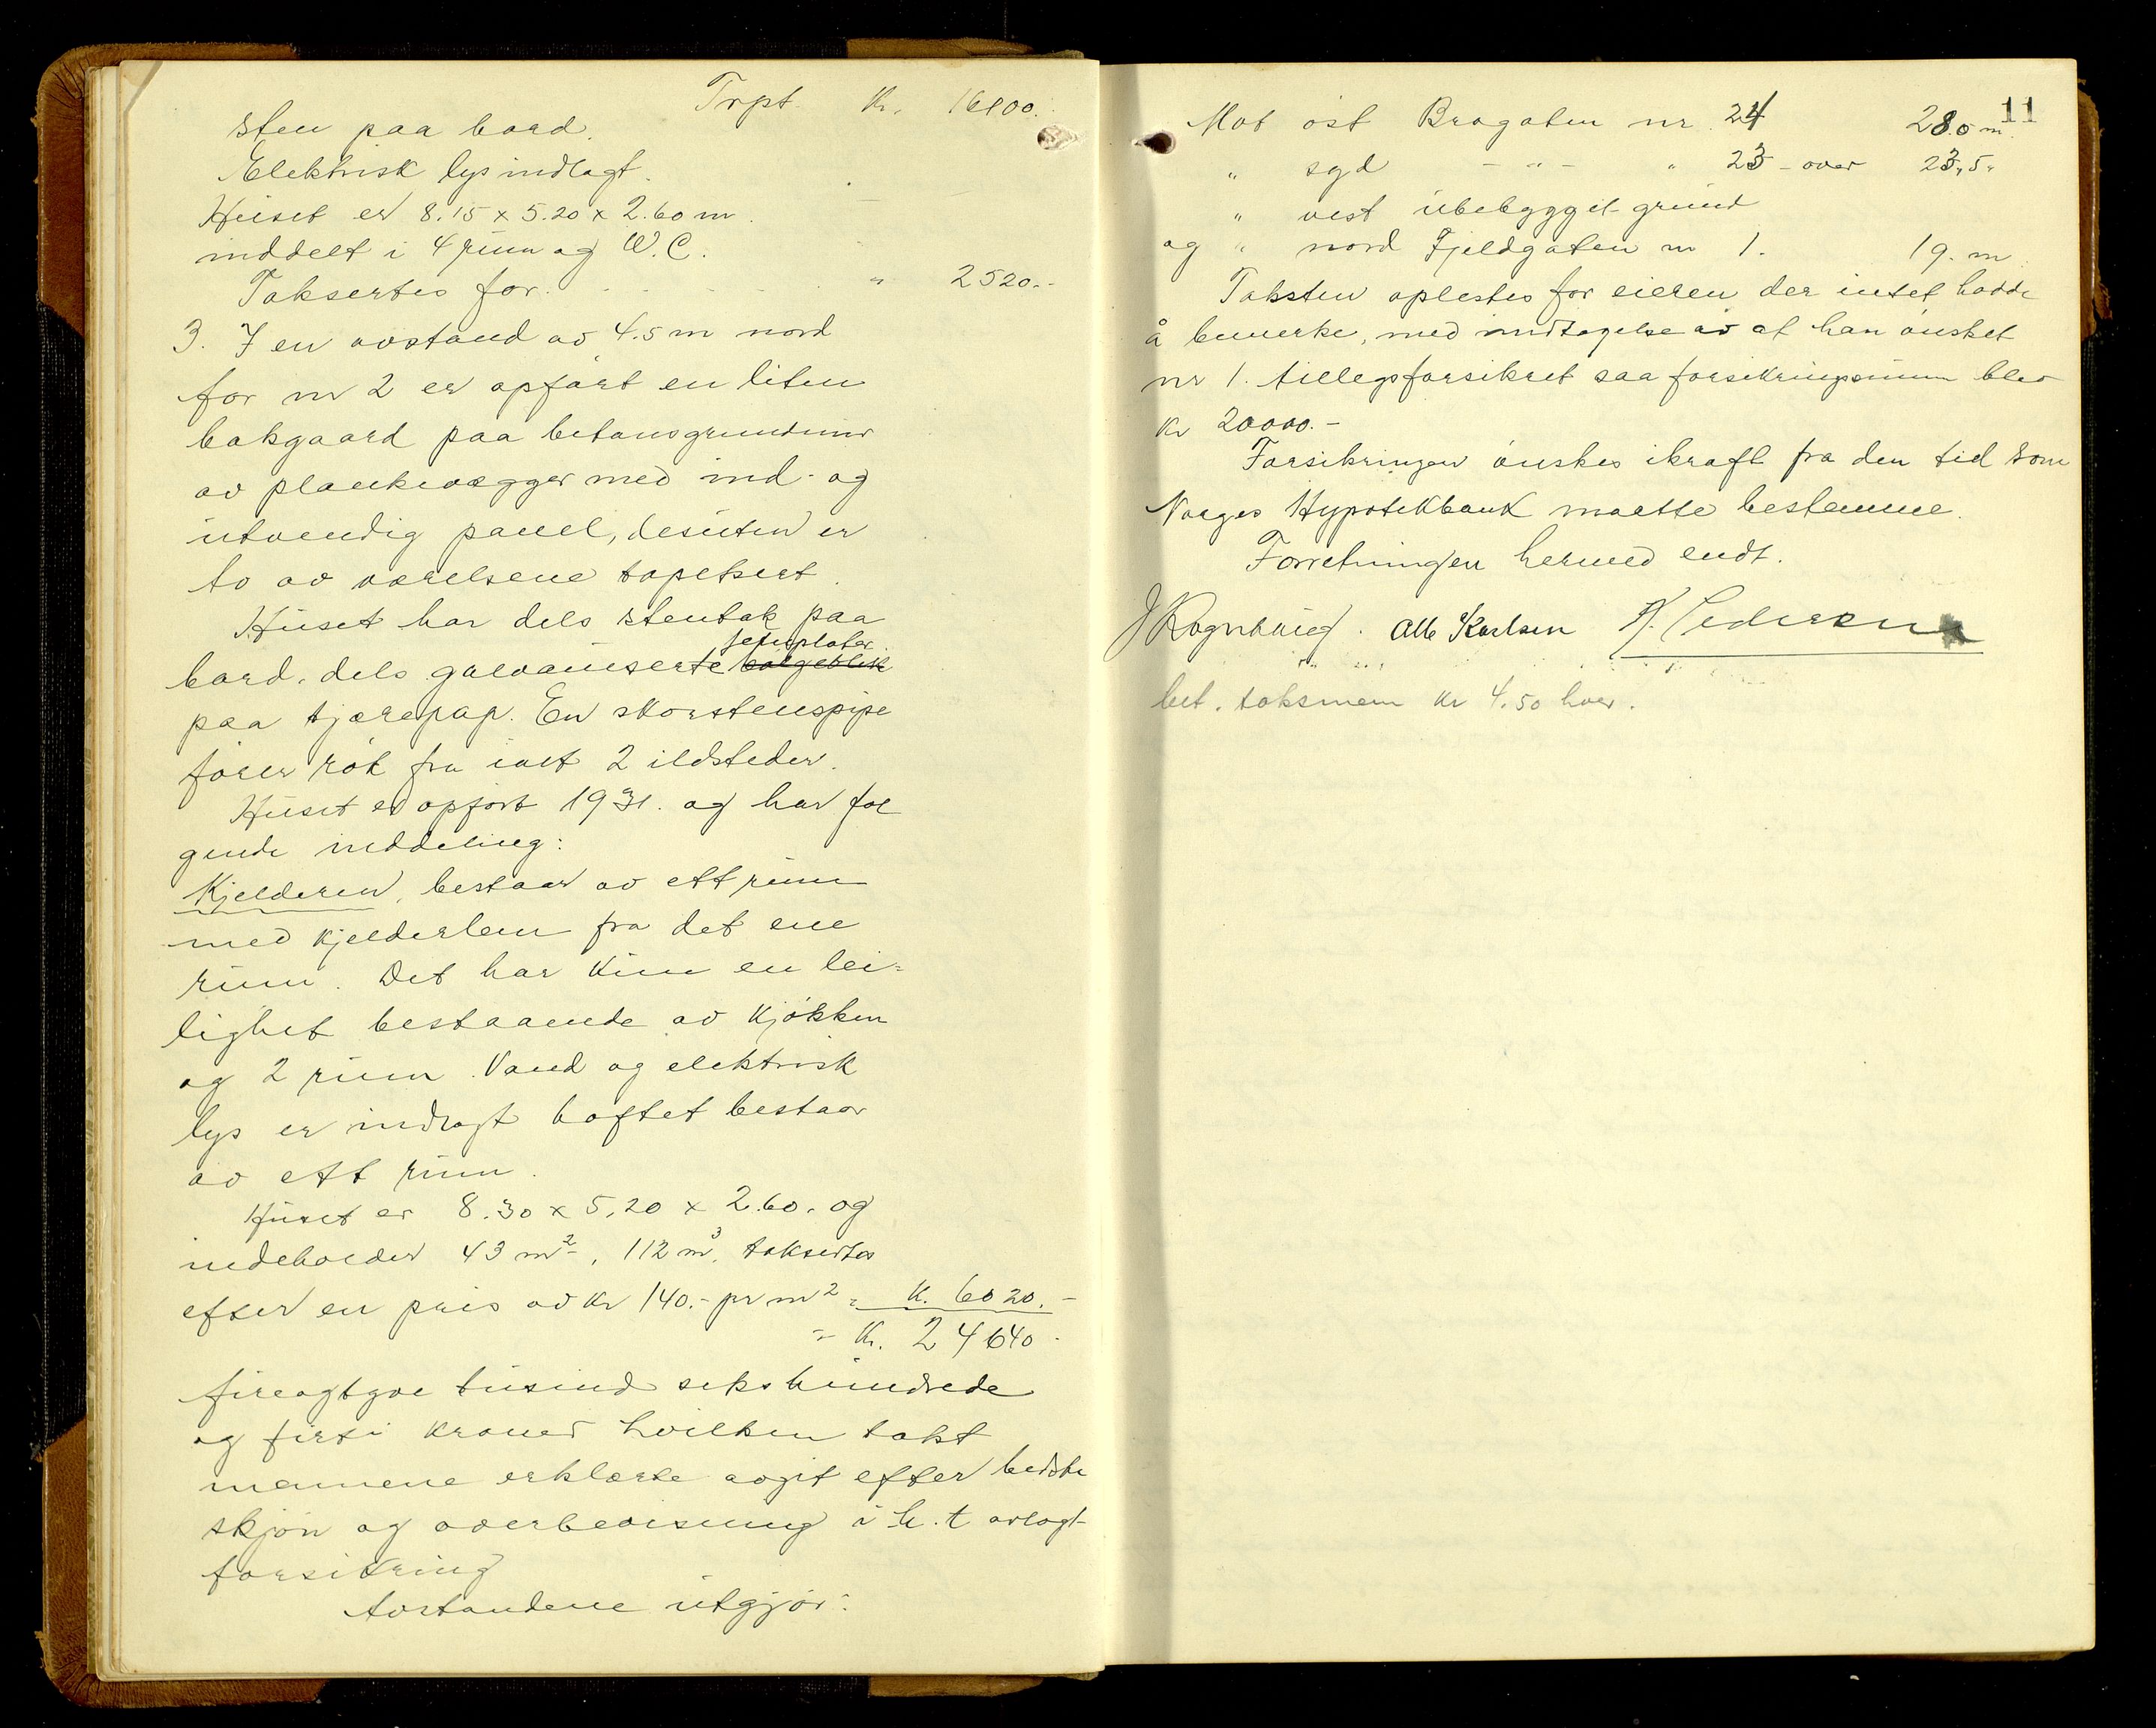 Trpt. Kr. 16100.-
sten paa bord.
Elektrisk lys indlagt.
Huset er 8.15 x 5.20 x 2.60 m.
inddelt i 4 rum og W.C.
Taksertes for. - - - - " 2520.-
3. I en avstand av 4.5 m nord
for nr 2 er opført en liten
bakgaard paa betongrundmur
av plankevægger med ind- og
utvendig panel, desuten er
to av værelsene tapetsert.
Huset har dels stentak paa
bord, dels galvaniserte jernplater
paa tjærepap. En skorstenspipe
fører røk fra ialt 2 ildsteder.
Huset er opført 1931. og har føl
gende inddeling:
Kjelderen, bestaar av ett rum
med kjelderlem fra det ene
rum. Det har kun en lei-
lighet bestaaende av kjøkken
og 2 rum. Vand og elektrisk
lys er indlagt loftet bestaar
av ett rum.
Huset er 8.30 x 5.20 x 2.60. og
indeholder 43 m², 112 m³, taksertes
efter en pris av kr 140.- pr m² = K. 6020.-
= Kr. 24640.-
fireogtyve tusind sekshundrede
og firti kroner hvilken takst
mennene erklærte avgit efter bedste
skjøn og overbevisning i h.t avlagt
forsikring
Avstandene utgjør:
11
Mot øst Bragaten nr. 24 28.0 m
" syd - " - " 23 - over 23,5"
" vest ubebygget grund
og " nord Fjeldgaten nr 1. 19. m
Taksten oplestes for eieren der intet hadde
å bemerke, med undtagelse av at han ønsket
nr 1. tillegsforsikret saa forsikringssum blev
kr 20000.-
Forsikringen ønskes ikraft fra den tid som
Norges Hypotekbank maatte bestemme.
Forretningen hermed endt.
J Rognhaug. Alb Karlsen H. Pedersen
bet. taksmenn kr 4.50 hver.